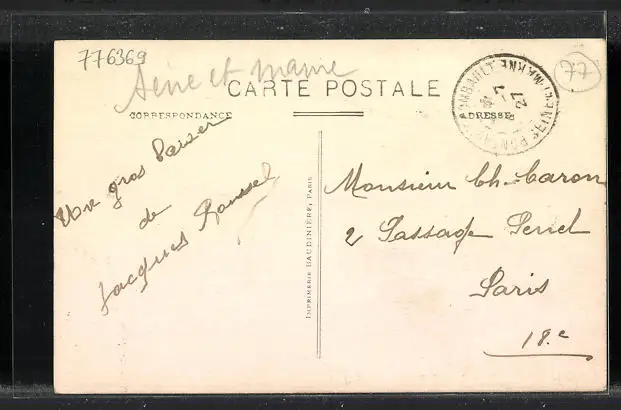 776369
Seine et Marne
77
CARTE POSTALE
CORRESPONDANCE
ADRESSE
7
27
Un gros Baiser
de
Jacques Roussel
IMPRIMERIE BAUDINIÈRE, PARIS
Monsieur Ch. Caron
2 Passage Penel
Paris
18.e